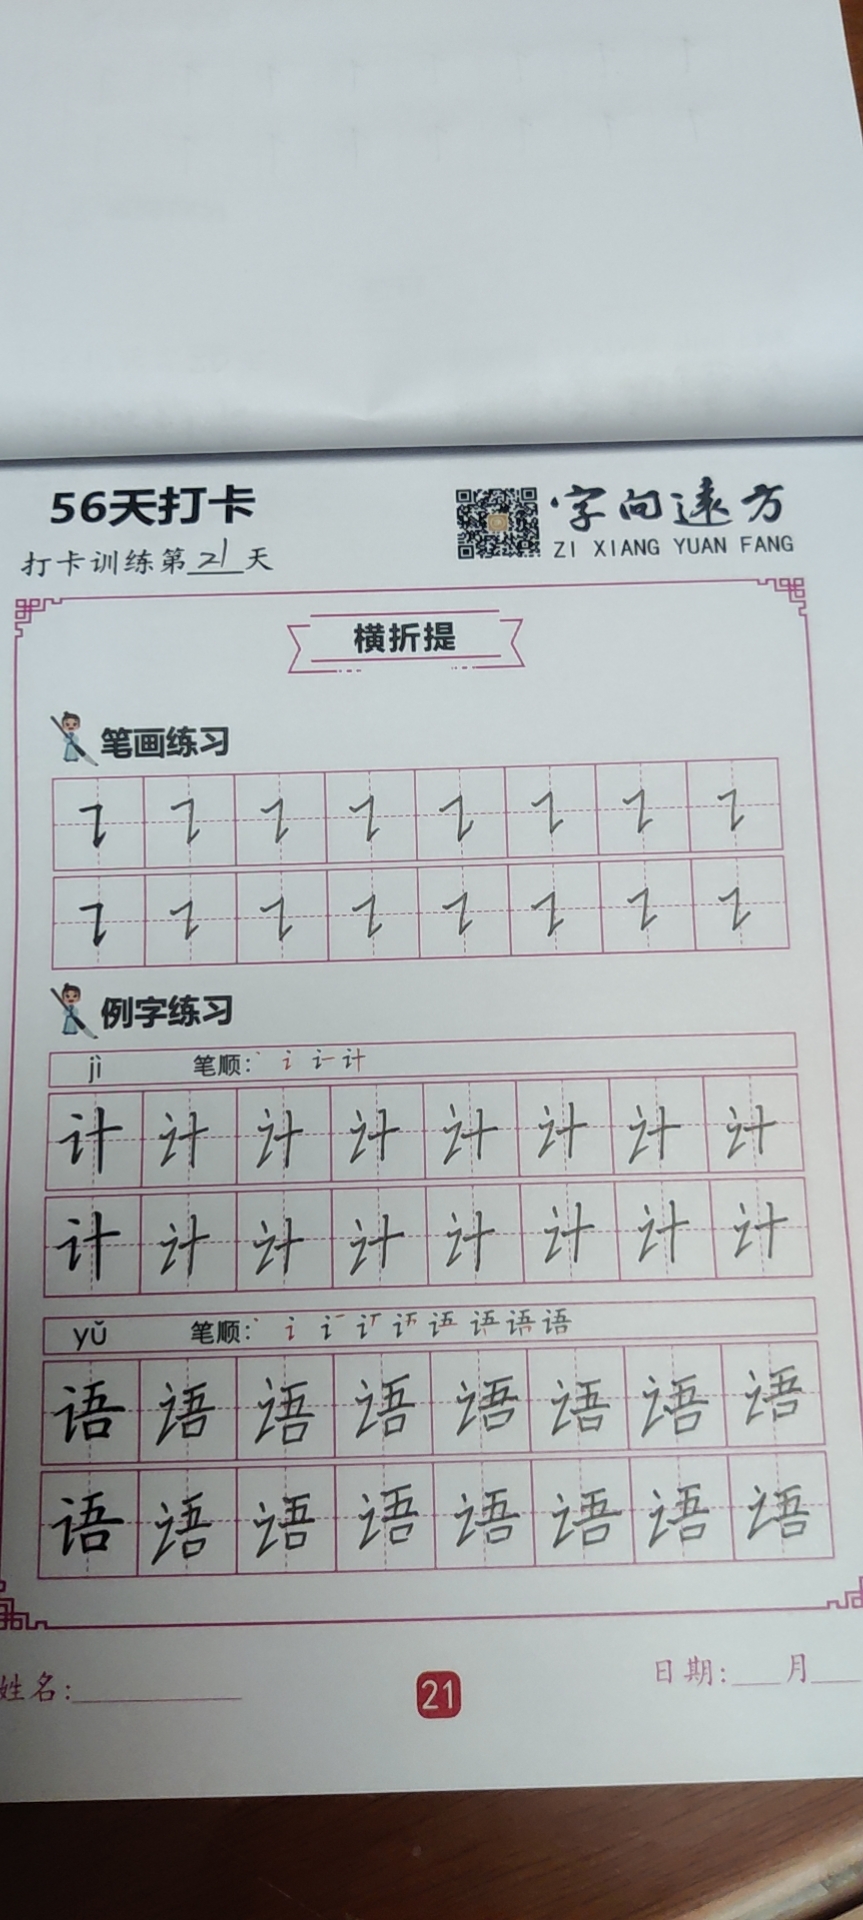 56天打卡
字向远方
打卡训练第21天
ZI XIANG YUAN FANG
横折提
笔画练习
㇊ ㇊ ㇊ ㇊ ㇊ ㇊ ㇊ ㇊
㇊ ㇊ ㇊ ㇊ ㇊ ㇊ ㇊ ㇊
例字练习
jì 笔顺: 计
计 计 计 计 计 计 计 计
计 计 计 计 计 计 计 计
yǔ 笔顺: 语
语 语 语 语 语 语 语 语
语 语 语 语 语 语 语 语
姓名:
21
日期: 月